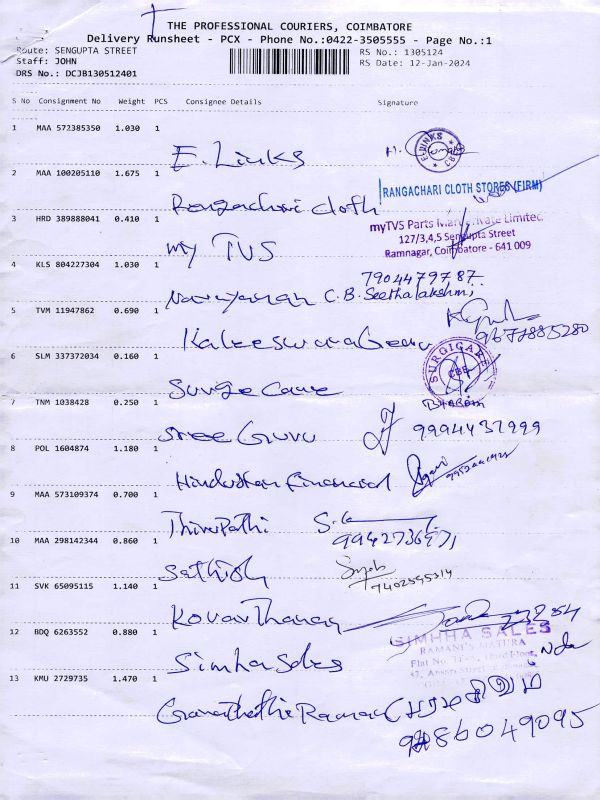 THE PROFESSIONAL COURIERS, COIMBATORE
Delivery Runsheet - PCX - Phone No.:0422-3505555 - Page No.:1
Route: SENGUPTA STREET
RS No.: 1305124
Staff: JOHN
RS Date: 12-Jan-2024
DRS No.: DCJB130512401
S No Consignment No Weight PCS Consignee Details Signature
1 MAA 572385350 1.030 1
E. Links
E-LINKS
2 MAA 100205110 1.675 1
Rangachari cloth
RANGACHARI CLOTH STORES (FIRM)
3 HRD 389888041 0.410 1
my TVS
myTVS Parts Private Limited
127/3,4,5 Sengupta Street
Ramnagar, Coimbatore - 641 009
4 KLS 804227304 1.030 1
Narayanan C.B. Seethalakshmi
7904479787
5 TVM 11947862 0.690 1
Kaleeswara
9677885280
6 SLM 337372034 0.160 1
Surge Care
SURGICARE
CBE
7 TNM 1038428 0.250 1
Sree Guru
9994437999
8 POL 1604874 1.180 1
Hindusthan Financial
9 MAA 573109374 0.700 1
Thirupathi
10 MAA 298142344 0.860 1
Sathish
11 SVK 65095115 1.140 1
Kovai
12 BDQ 6263552 0.880 1
Simha Sales
SIMHHA SALES
13 KMU 2729735 1.470 1
9486049095